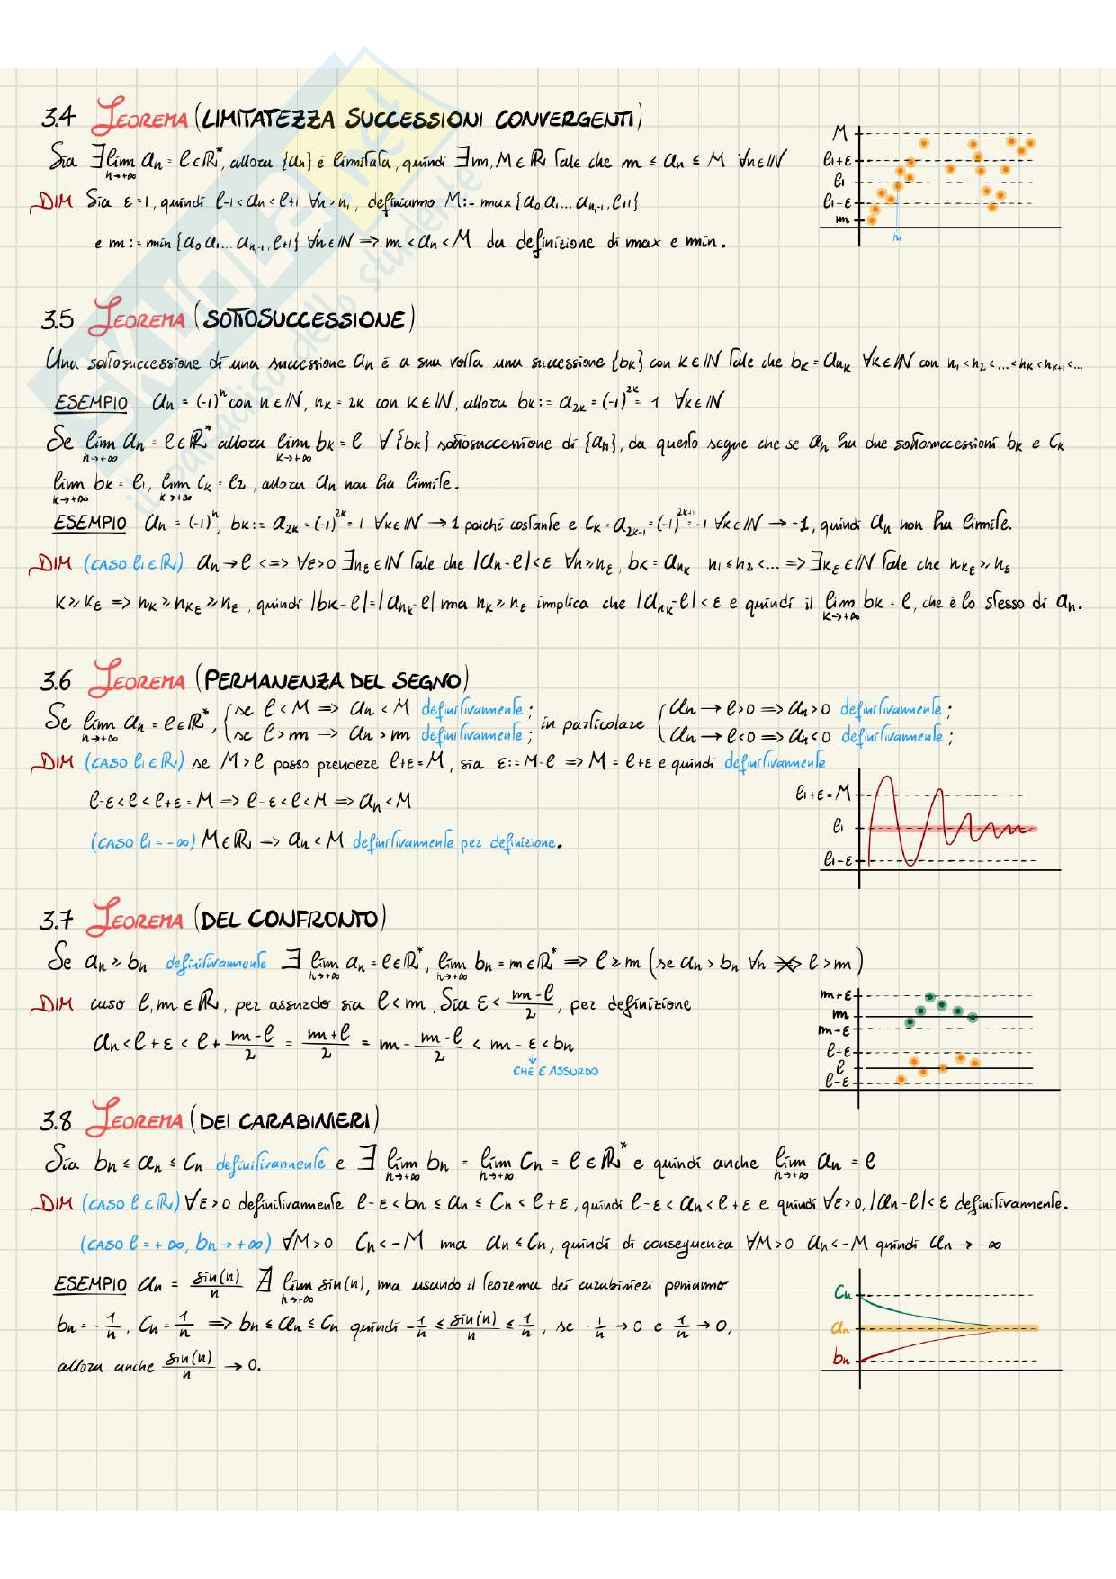 3.4 TEOREMA (LIMITATEZZA SUCCESSIONI CONVERGENTI)
Sia ∃ lim n→+∞ an = ℓ ∈ ℝ*, allora {an} è limitata, quindi ∃ m, M ∈ ℝ tale che m ≤ an ≤ M ∀n∈ℕ
DIM Sia ε=1, quindi ℓ-1<an<ℓ+1 ∀n>n1, definiamo M:= max{a0 a1... an1-1, ℓ+1}
e m:= min{a0 a1... an1-1, ℓ+1} ∀n∈ℕ => m<an<M da definizione di max e min.
M
ℓ1+ε
ℓ1
ℓ1-ε
m
n1
3.5 TEOREMA (SOTTOSUCCESSIONE)
Una sottosuccessione di una successione an è a sua volta una successione {bk} con k∈ℕ tale che bk = ank ∀k∈ℕ con n1<n2<...<nk<nk+1<...
ESEMPIO an = (-1)^n con n∈ℕ, nk = 2k con k∈ℕ, allora bk := a2k = (-1)^2k = 1 ∀k∈ℕ
Se lim n→+∞ an = ℓ∈ℝ* allora lim k→+∞ bk = ℓ ∀{bk} sottosuccessione di {an}, da questo segue che se an ha due sottosuccessioni bk e ck
lim k→+∞ bk = ℓ1, lim k→+∞ ck = ℓ2, allora an non ha limite.
ESEMPIO an = (-1)^n, bk := a2k = (-1)^2k = 1 ∀k∈ℕ → 1 poiché costante e ck = a2k-1 = (-1)^2k-1 = -1 ∀k∈ℕ → -1, quindi an non ha limite.
DIM (CASO ℓ1∈ℝ) an→ℓ <=> ∀ε>0 ∃nε∈ℕ tale che |an-ℓ|<ε ∀n≥nε, bk = ank n1≤n2<... => ∃kε∈ℕ tale che nkε≥nε
k≥kε => nk≥nkε≥nε, quindi |bk-ℓ|=|ank-ℓ| ma nk≥nε implica che |ank-ℓ|<ε e quindi il lim k→+∞ bk = ℓ, che è lo stesso di an.
3.6 TEOREMA (PERMANENZA DEL SEGNO)
Se lim n→+∞ an = ℓ∈ℝ*, { se ℓ<M => an<M definitivamente; se ℓ>m → an>m definitivamente; in particolare { an→ℓ>0 => an>0 definitivamente; an→ℓ<0 => an<0 definitivamente;
DIM (CASO ℓ1∈ℝ) se M>ℓ posso prendere ℓ+ε=M, sia ε:=M-ℓ => M=ℓ+ε e quindi definitivamente
ℓ-ε<ℓ<ℓ+ε=M => ℓ-ε<ℓ<M => an<M
(CASO ℓ1=-∞) M∈ℝ → an<M definitivamente per definizione.
ℓ1+ε=M
ℓ1
ℓ1-ε
3.7 TEOREMA (DEL CONFRONTO)
Se an≥bn definitivamente ∃ lim n→+∞ an = ℓ∈ℝ*, lim n→+∞ bn = m∈ℝ* => ℓ≥m (se an>bn ∀n ≠> ℓ>m)
DIM caso ℓ,m∈ℝ, per assurdo sia ℓ<m. Sia ε<(m-ℓ)/2, per definizione
an<ℓ+ε<ℓ+(m-ℓ)/2 = (m+ℓ)/2 = m-(m-ℓ)/2 < m-ε<bn
CHE È ASSURDO
m+ε
m
m-ε
ℓ-ε
ℓ
ℓ-ε
3.8 TEOREMA (DEI CARABINIERI)
Sia bn≤an≤cn definitivamente e ∃ lim n→+∞ bn = lim n→+∞ cn = ℓ∈ℝ* e quindi anche lim n→+∞ an = ℓ
DIM (CASO ℓ∈ℝ) ∀ε>0 definitivamente ℓ-ε<bn≤an≤cn<ℓ+ε, quindi ℓ-ε<an<ℓ+ε e quindi ∀ε>0, |an-ℓ|<ε definitivamente.
(CASO ℓ=+∞, bn→+∞) ∀M>0 cn<-M ma an≤cn, quindi di conseguenza ∀M>0 an<-M quindi an → ∞
ESEMPIO an = sin(n)/n ∄ lim n→+∞ sin(n), ma usando il teorema dei carabinieri poniamo
bn = -1/n, cn = 1/n => bn≤an≤cn quindi -1/n ≤ sin(n)/n ≤ 1/n, se -1/n→0 e 1/n→0,
allora anche sin(n)/n → 0.
cn
an
bn